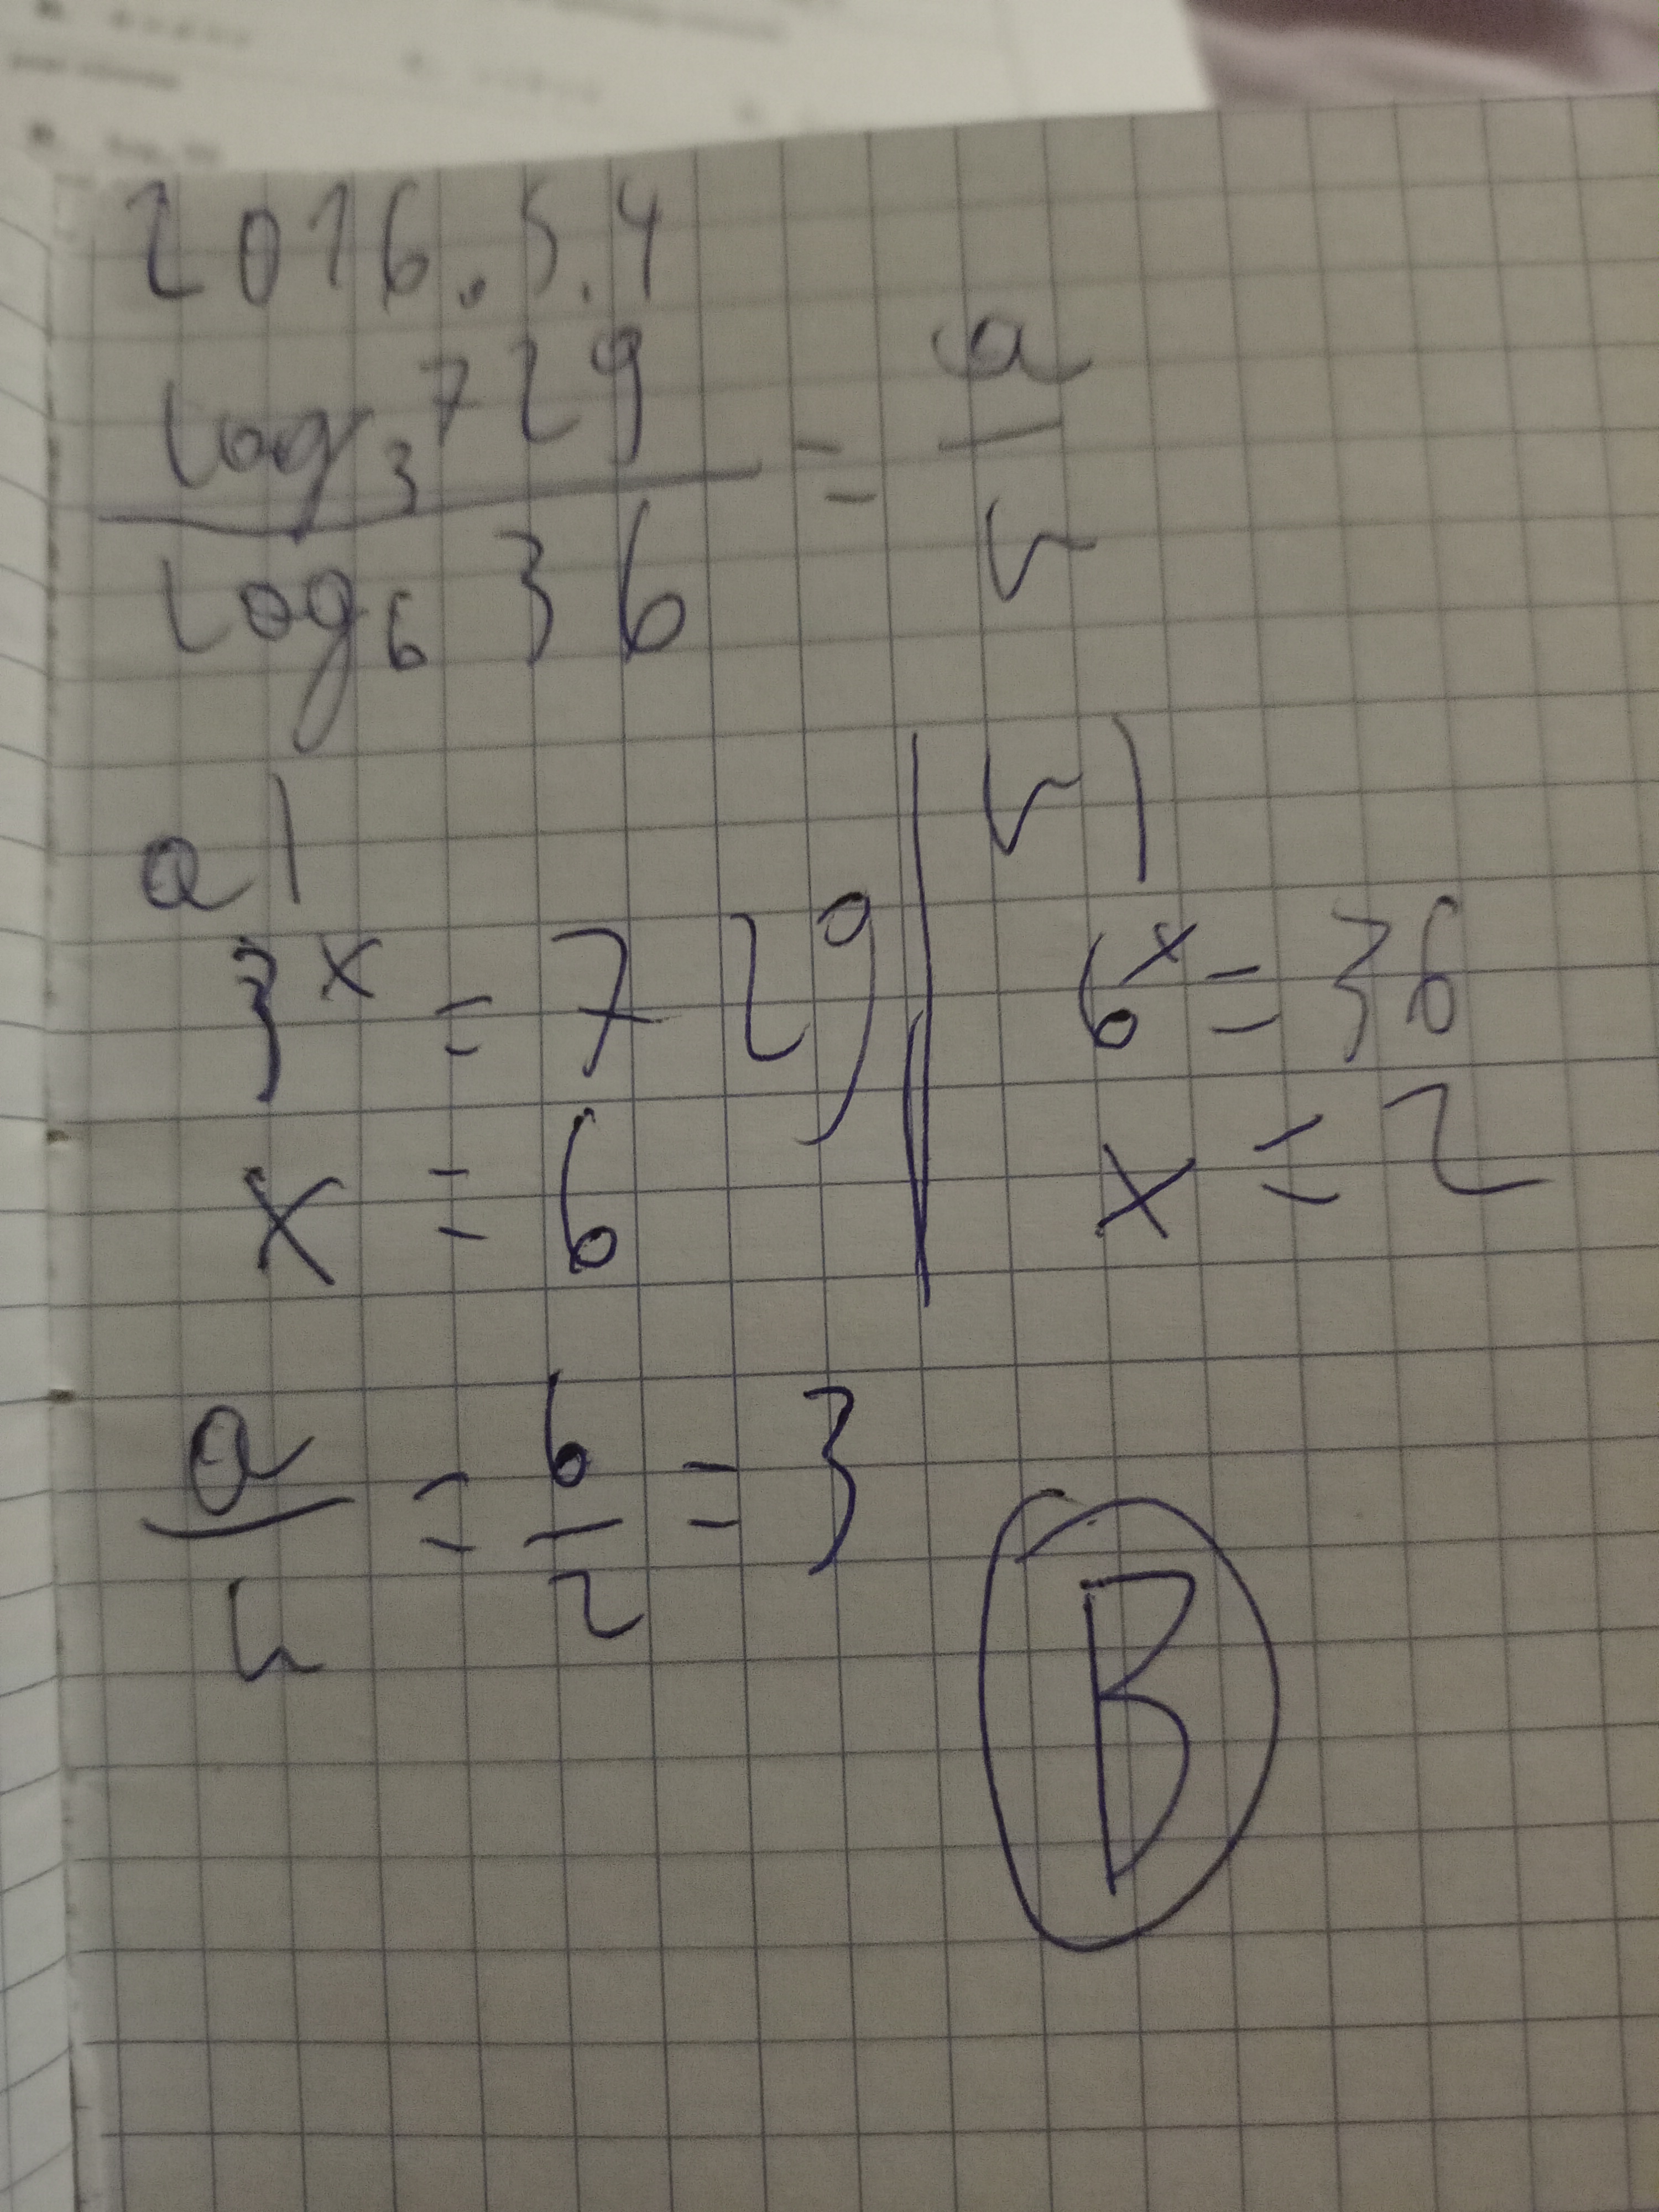 2016.5.4
log₃729 / log₆36 = a / b
a)
3ˣ = 729
x = 6
b)
6ˣ = 36
x = 2
a / b = 6 / 2 = 3
B